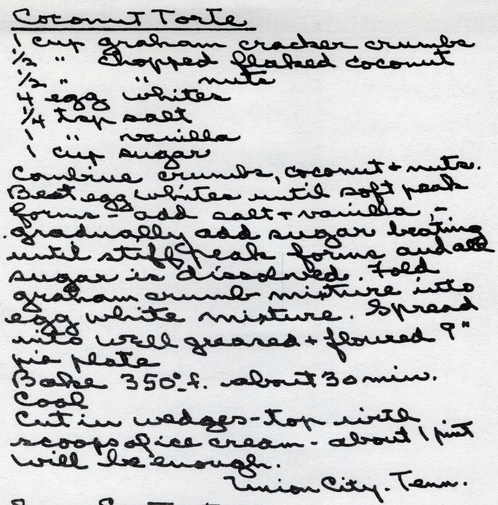 Coconut Torte
1 cup graham cracker crumbs
1/2 " chopped flaked coconut
1/2 " " nuts
4 egg whites
1/4 tsp salt
1 " vanilla
1 cup sugar
Combine crumbs, coconut + nuts.
Beat egg whites until soft peak
forms - add salt + vanilla, -
gradually add sugar beating
until stiff peak forms and all
sugar is dissolved. Fold
graham crumb mixture into
egg white mixture. Spread
into well greased + floured 9"
pie plate
Bake 350° f. about 30 min.
Cool
Cut in wedges - top with
scoops of ice cream - about 1 pint
will be enough.
Union City. Tenn.